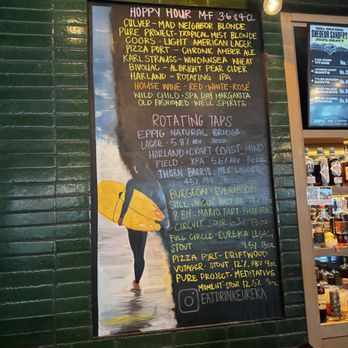 HOPPY HOUR M-F 3-6 & 9-CL
CULVER - MAD NEIGHBOR BLONDE
PURE PROJECT - TROPICAL MIST BLONDE
COORS - LIGHT AMERICAN LAGER
PIZZA PORT - CHRONIC AMBER ALE
KARL STRAUSS - WINDANSEA WHEAT
BIVOUAC - ALBRIGHT PEAR CIDER
HARLAND - ROTATING IPA
HOUSE WINE - RED - WHITE - ROSÉ
WILD CHILD - SPA DAY MARGARITA
OLD FASHIONED - WELL SPIRITS
ROTATING TAPS
EPPIG - NATURAL BRIDGE
LAGER - 5.8% ABV
HARLAND + CRAFT COAST - MIND
FIELD - XPA 5.6% ABV
THORN BARRIO - MEX LAGER
4.5%
BURGEON - EVERYBODY'S
STILL JUICIN'
8 BIT - MARIO TART
CIRCUIT SOUR 6.3% 13oz
FULL CIRCLE - EUREKA LEGACY
STOUT 9.5% 13oz
PIZZA PORT - DRIFTWOOD
VOYAGER - STOUT 12% ABV 9oz
PURE PROJECT - MEDITATIVE
MOMENT - STOUT 12.5% 9oz
EATDRINKEUREKA
SHEDEUR SANDERS